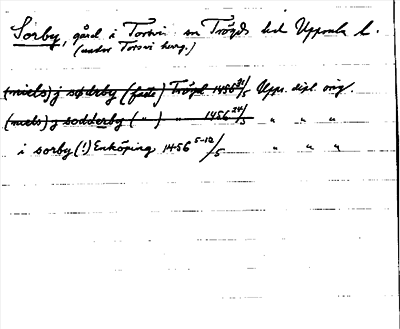 Sörby, gård i Torsvi sn Trögds hd Uppsala l.
(nästov Torsvi herrg.)
(niels) j søderby (fasti) Trögd 1456 24/5 Upps. dipl. orig.
(niels) j sodderby ( " ) " 1456 24/5 " " "
i sorby (!) Enköping 1456 5-12/5 " " "